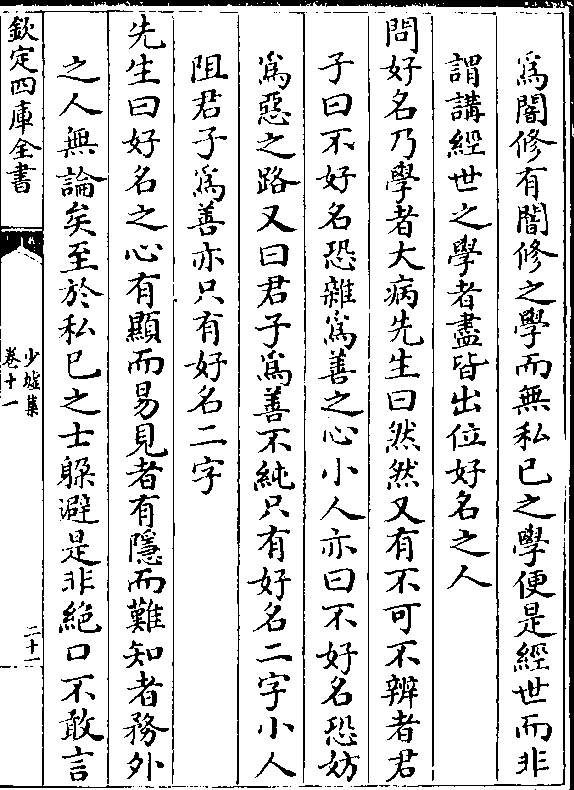 爲闇修有闇修之學而無私已之學便是經世而非
謂講經世之學者盡皆出位好名之人
問好名乃學者大病先生曰然然又有不可不辨者君
子曰不好名恐雜爲善之心小人亦曰不好名恐妨
爲惡之路又曰君子爲善不純只有好名二字小人
阻君子爲善亦只有好名二字
先生曰好名之心有顯而易見者有隱而難知者務外
之人無論矣至於私已之士躱避是非絶口不敢言
欽定四庫全書
少墟集
卷十一
二十一